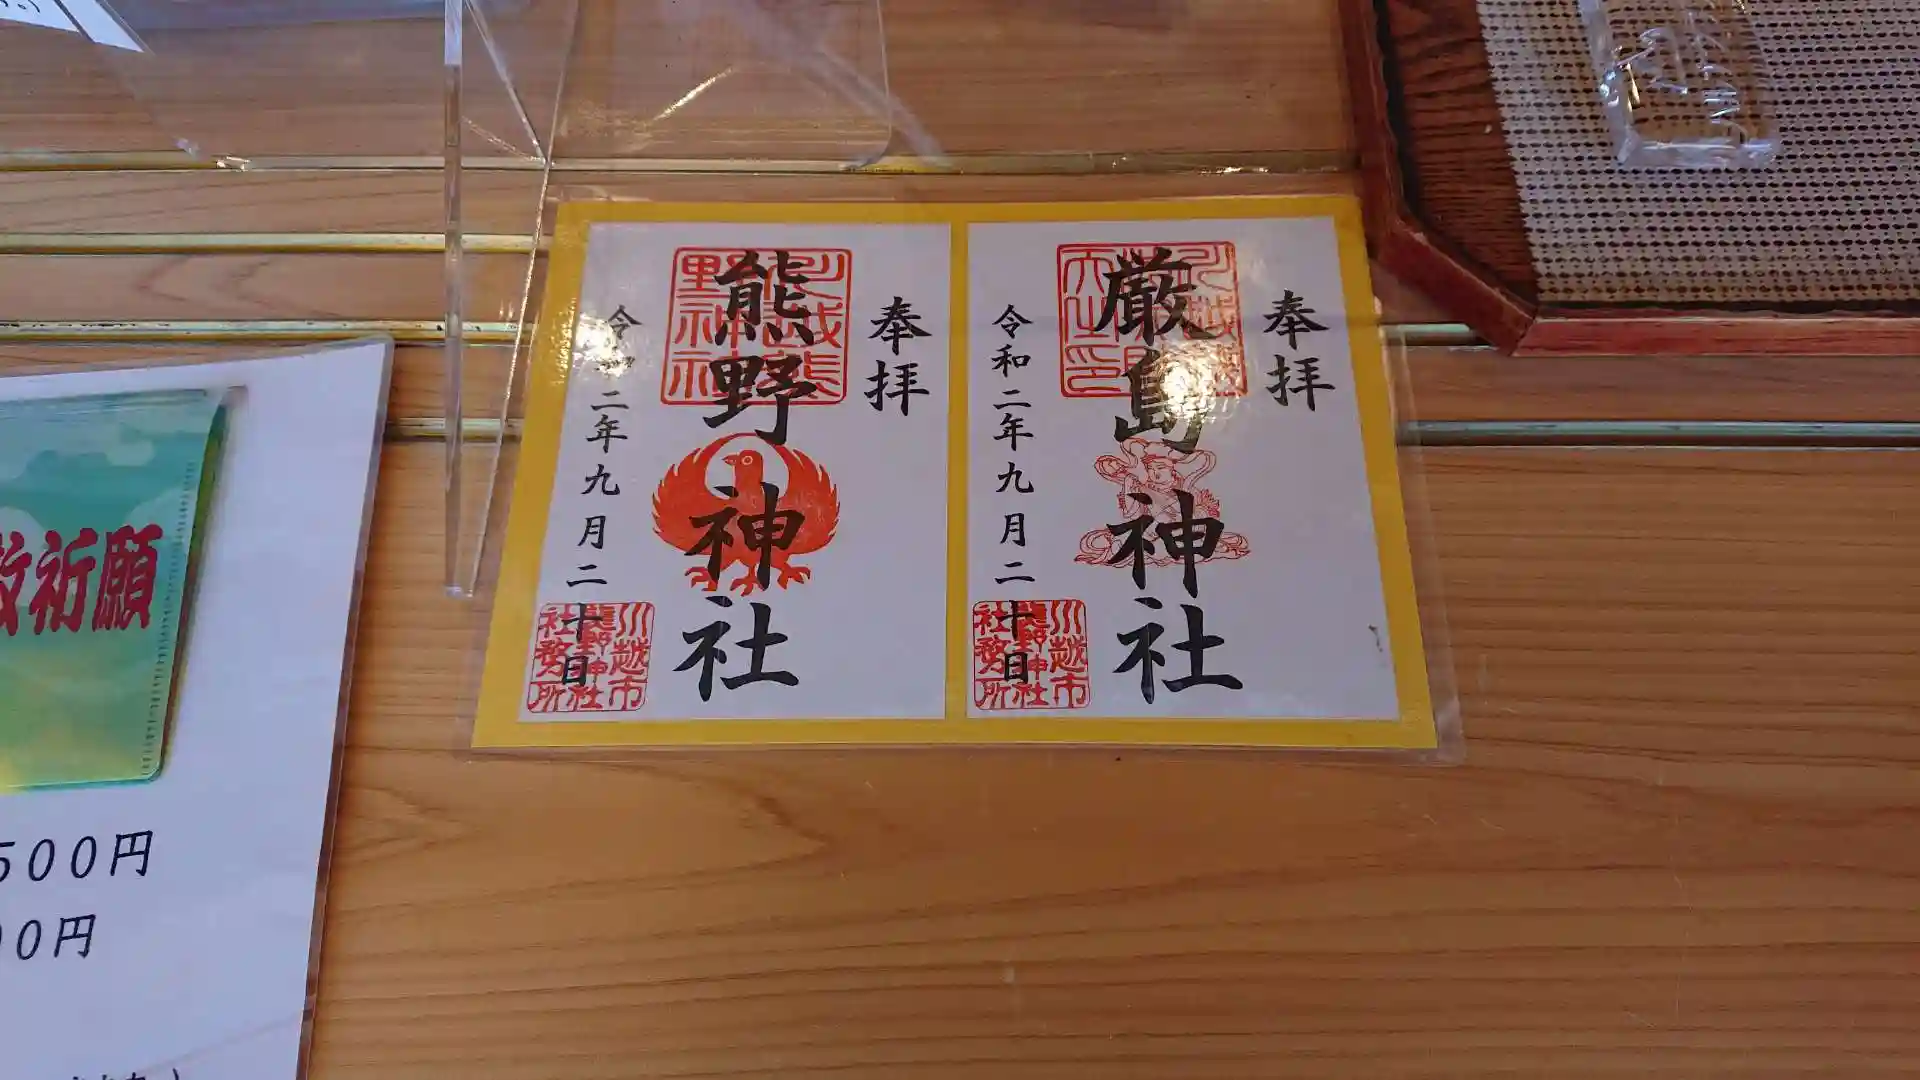 奉拝
厳島神社
令和二年九月二十日
川越市
熊野神社
社務所
奉拝
熊野神社
川越熊
野神社
令和二年九月二十日
川越市
熊野神社
社務所
祈願
500円
00円